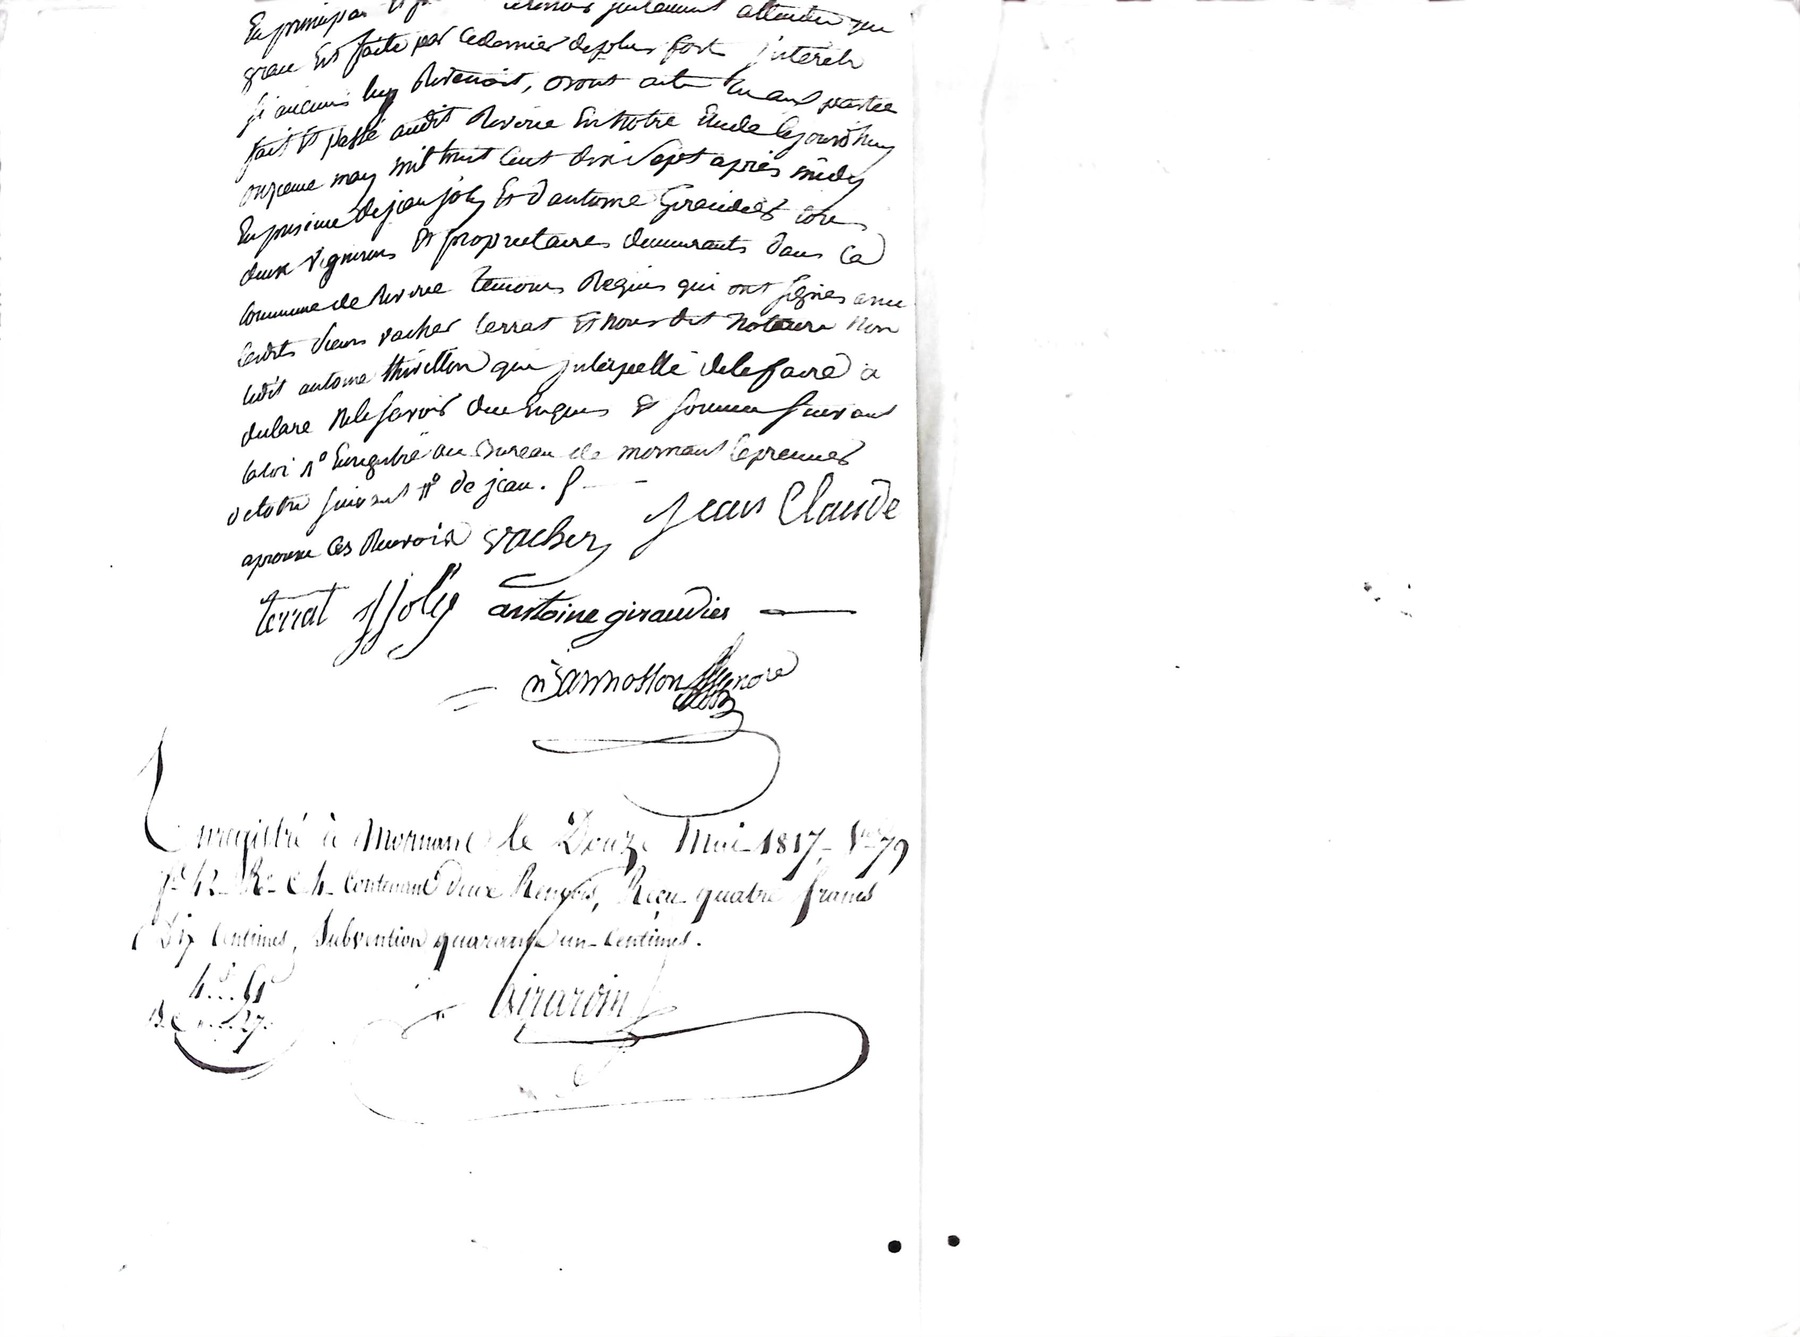 En principal et
grace Est faite par cedernier deplus fort jnterets
si aucuns luy Revenoit, Dont acte lu aux parties
fait Et passé audit Riverie En Notre Etude Cejourdhuy
onzieme may mil huit Cent dix Sept après midy
En presence de jean joly Et d'antoine Giraudier tous
deux vignerons Et proprietaires demeurants dans la
Commune de Riverie temoins Requis qui ont signés avec
lesdits Sieurs vacher terrat Et nous dit Notaire Non
ledit antoine thivillon qui jnterpellé delefaire a
declaré Nele savoir dece Enquis Et sommé suivant
laloi No Enregistré au Bureau de mornant lepremier
octobre suivant No de jean.
aprouvé Ces Renvois vacher Jean Claude
terrat JJoly antoine giraudier
Enregistré à Mornant le Douze Mai 1817, Vol 79
fo 42 Ro C 4 Contenant deux Renvois, Reçu quatre francs
Dix Centimes, Subvention quarante un Centimes.
4..51
Girardin